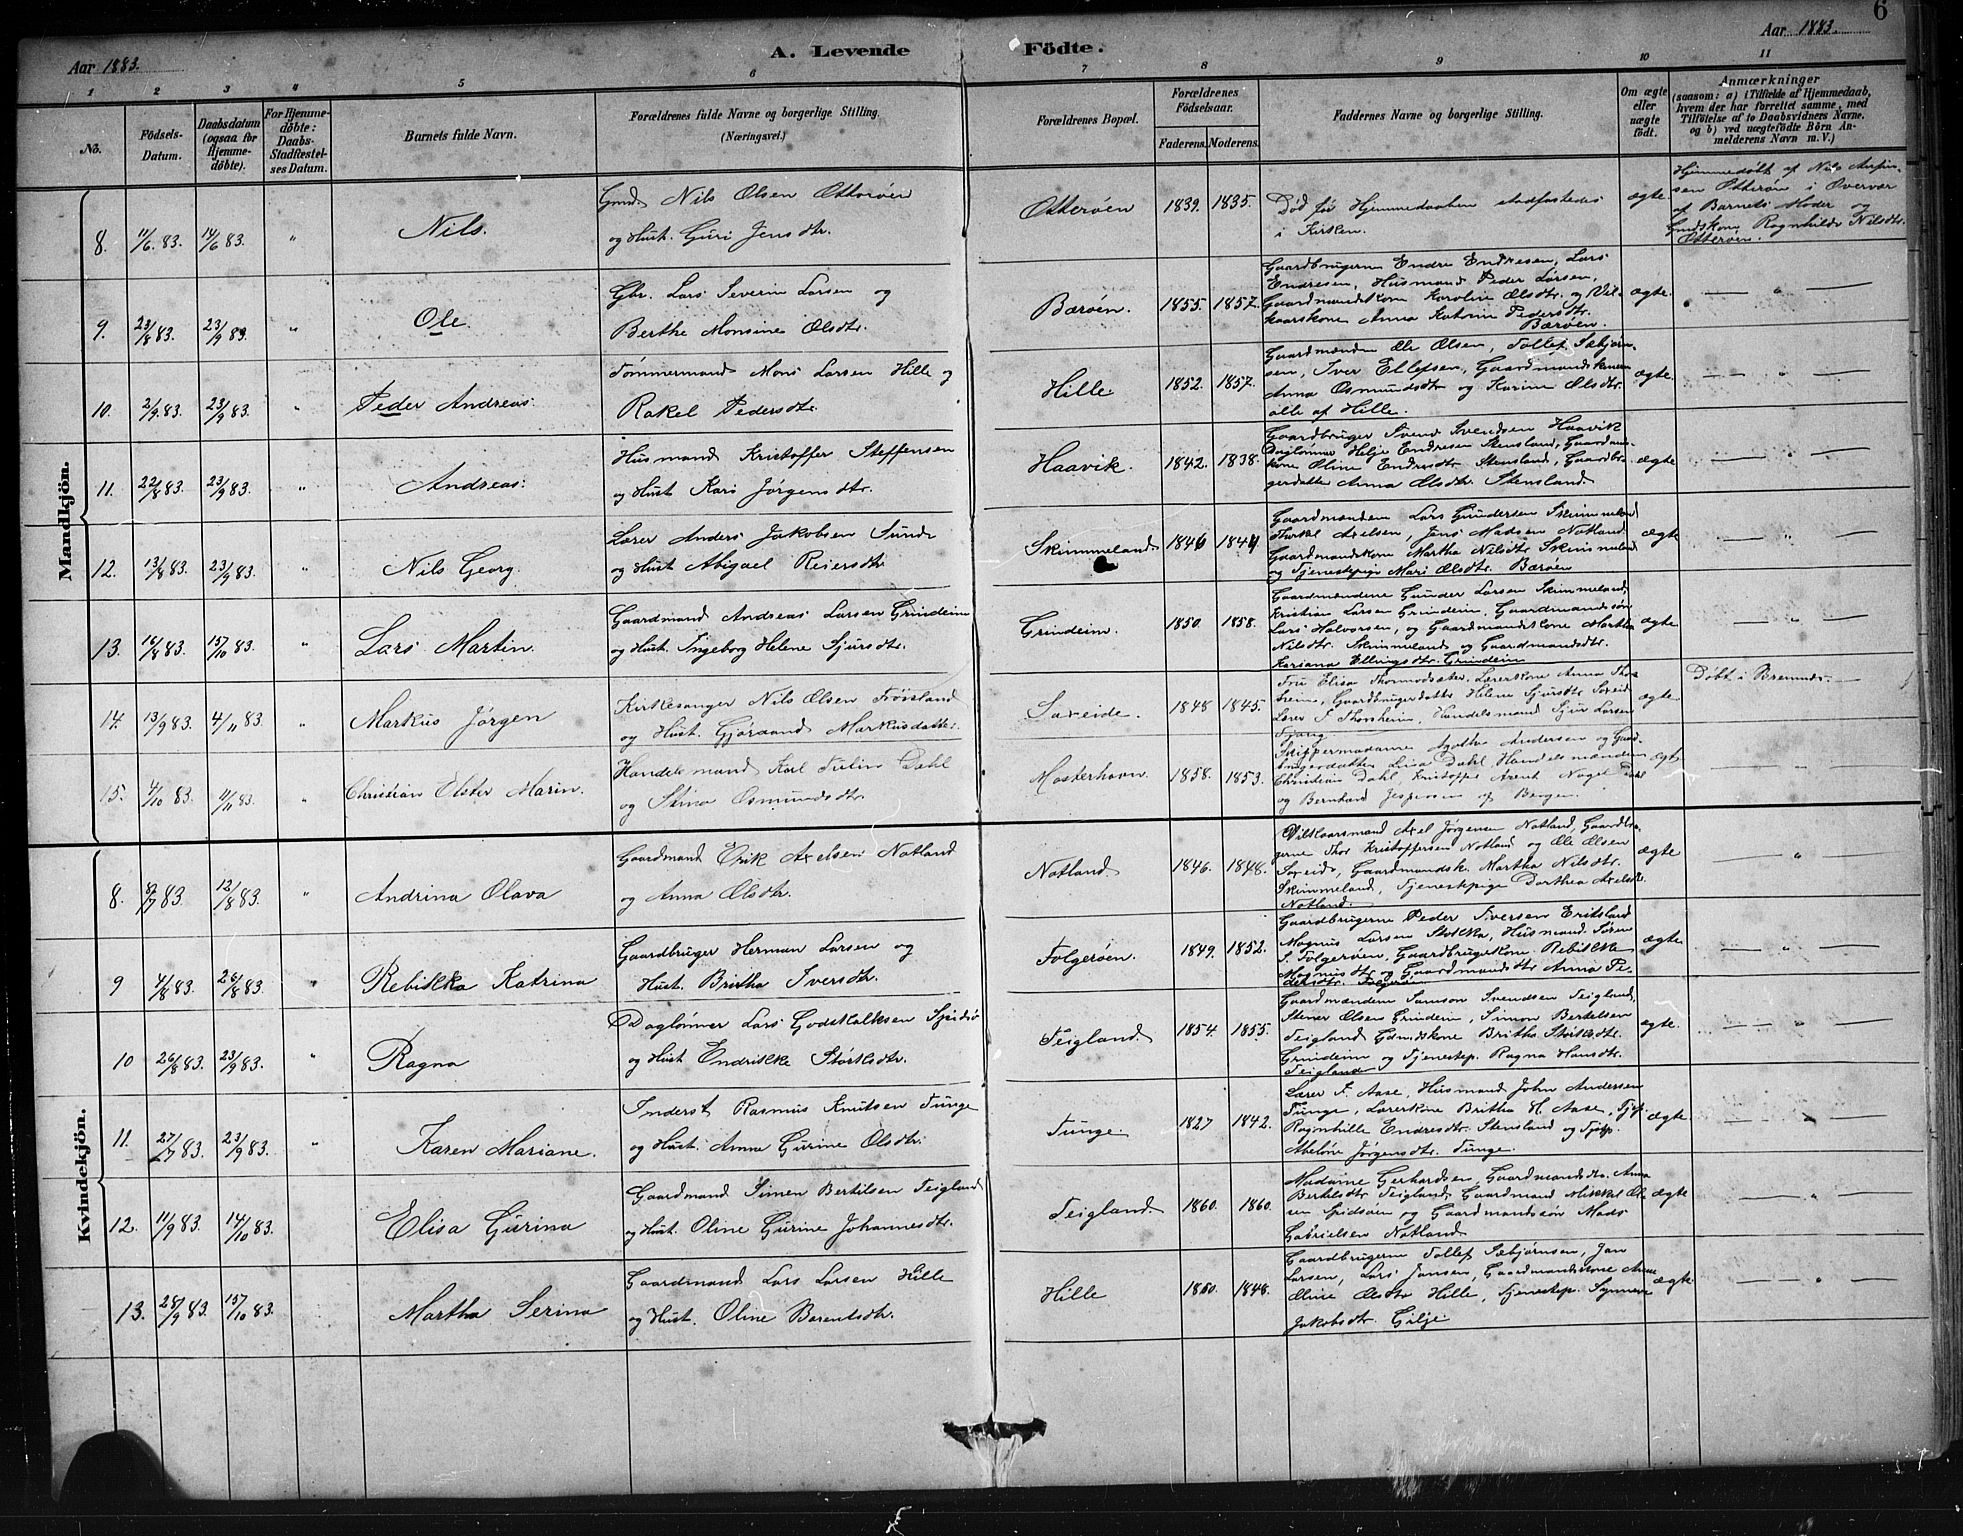 6
Aar 1883.
A. Levende Födte.
Aar 1883.
1 2 3 4 5 6 7 8 9 10 11
No.
Födsels-Datum.
Daabsdatum (ogsaa for Hjemme-döbte).
For Hjemme-döbte: Daabs-Stadfæstel-ses Datum.
Barnets fulde Navn.
Forældrenes fulde Navne og borgerlige Stilling.
(Næringsvei.)
Forældrenes Bopæl.
Forældrenes Födselsaar.
Faderens. Moderens.
Faddernes Navne og borgerlig Stilling.
Om ægte eller uægte födt.
Anmærkninger
(saasom: a) i Tilfælde af Hjemmedaab,
hvem der har forrettet samme, med
Tilföielse af to Daabsvidners Navne.
og b) ved uægtefödte Börn An-
melderens Navn m.V.)
Mandkjön.
8. 11/6 83. 14/6 83. " Nils. Gmd. Nils Olsen Otterøen
og Hust. Guri Jensdtr.
Otterøen 1839. 1835.
Død før Hjemmedaaben stadfæstedes
i Kirken.
ægte.
Hjemmedøbt af Nils
Otterøen i Overvær
af Barnets Moder og
Gmdskone Ragnhilde Nilsdtr.
Otterøen.
9. 23/8 83. 23/9 83. " Ole. Gbr. Lars Severin Larsen og
Berthe Monsine Olsdtr.
Bærøen. 1855. 1857.
Gaardbrugerne Endre Endresen, Lars
Endresen, Husmand Peder Larsen,
Gaardmandskone Karoline Olsdtr. og Vil-
kaarskone Anna Katrine Pedersdtr.
Bærøen.
ægte. — " —
10. 2/9 83. 23/9 83. " Peder Andreas. Tømmermand Mons Larsen Hille og
Rakel Pedersdtr.
Hille 1852. 1857.
Gaardmændene Ole Olsen, Tollef Sæbjørn-
sen, Iver Ellefsen, Gaardmandskonerne
Anna Osmundsdtr og Karine Olsdtr.
alle af Hille.
ægte. — " —
11. 22/8 83. 23/9 83. " Andreas. Husmand Kristoffer Steffensen
og Hust Kari Jørgensdtr.
Haavik. 1842. 1838.
Gaardbruger Svend Svendsen Haavik
Daglønner Helje Endresen Stensland, Gaardmands-
kone Oline Endresdtr Stensland, Gaardbru-
gerdatter Anna Olsdtr. Stensland.
ægte — " —
12. 13/8 83. 23/9 83. " Nils Georg. Lærer Anders Jakobsen Sunde
og Hust Abigael Reiersdtr
Skimmeland 1846 1844
Gaardmændene Lars Gundersen Skimmeland
Thorkel Axelsen, Jens Madsen Notland
Gaardmandskone Martha Nilsdtr Skimmeland
og Tjenestepige Mari Olsdtr. Bærøen
ægte — " —
13. 16/8 83. 15/10 83. " Lars Martin. Gaardmand Andreas Larsen Grindeim
og Hust. Ingeborg Helene Sjursdtr.
Grindeim. 1850. 1858.
Gaardmændene Gunder Larsen Skimmeland,
Kristian Larsen Grindeim, Gaardmandssøn
Lars Halvorsen, og Gaardmandskone Martha
Nilsdtr. Skimmeland og Gaardmandsdtr.
Kariana Ellingsdtr. Grindeim
ægte — " —
14. 13/9 83. 4/11 83. " Markus Jörgen Kirkesanger Nils Olsen Frøisland
og Hust. Gjøraand Markusdatter.
Sareide. 1848 1845.
Fru Elisa Thormodsæter, Lærerkone Anna Thors-
heim, Gaardbrugerdatter Helene Sjursdtr Sareide
Lærer F. Thorsheim, Handelsmand Sjur Larsen
ægte. Døbt i Bremnes.
15. 4/10 83. 4/11 83. " Christian Elster Marin. Handelsmand Karl Tulin Dahl
og Stina Osmundsdtr.
Mosterhavn. 1858. 1853.
Skippermadame Agathe Andersen og Gaard-
brugerdatter Lisa Dahl Handelsmændene
Christian Dahl, Kristoffer Arent Nagel Dahl
og Bernhard Jespersen af Bergen.
ægte
Kvindekjön.
8. 8/7 83. 12/8 83. " Andrina Olava Gaardmand Erik Axelsen Notland
og Anna Olsdtr.
Notland 1846. 1848.
Vilkaarsmand Axel Jørgensen Notland, Gaardbru-
gerne Thor Kristoffersen Notland og Ole Olsen
Sareid, Gaardmandsk. Martha Nilsdtr.
Skimmeland, Tjenestepige Dorthea Axelsdtr
Notland.
ægte — " —
9 4/8 83. 26/8 83. " Rebikka Katrina Gaardbruger Herman Larsen og
Hust. Britha Iversdtr.
Folgerøen. 1849. 1852.
Gaardbrugerne Peder Iversen Eritsland
Magnus Larsen Stokka, Husmand Søren
S. Folgerøen, Gaardbrugerkone Rebikka
Magnusdtr og Gaardmandsdtr Anna Pe-
dersdtr. Folgerøen
ægte — " —
10 26/8 83. 23/9 83. " Ragna Daglønner Lars Godskalksen Spidsø
og Hust Endrikke Størksdtr.
Teigland. 1854. 1855.
Gaardmændene Samson Svendsen Teigland,
Stener Olsen Grindeim, Simon Bertelsen
Teigland Gdmdskone Britha Størksdtr.
Grindeim og Tjenestep. Ragna Hansdtr.
Teigland
ægte. — " —
11. 27/7 83. 23/9 83. " Karen Mariane. Inderst Rasmus Knutsen Tunge
og Hust. Anna Gurine Olsdtr.
Tunge. 1827 1842.
Lærer F. Aase, Husmand John Andersen
Tunge, Lærerkone Britha H. Aase, Tjp.
Ragnhilde Endresdtr. Stensland og Tjp.
Abelone Jørgensdtr. Tunge.
ægte "
12. 11/9 83. 14/10 83. Elisa Gurina Gaardmand Simen Bertilsen Teigland
og Hust. Oline Gurine Johannesdtr.
Teigland. 1860. 1860.
Madame Gerhardsen, Gaardmandsdtr. Anna
Berteldtr Teigland, Gaardmand Mikkel Ol-
sen Spidsøen og Gaardmandssøn Mads
Gabrielsen Notland
ægte — " —
13. 28/9 83. 15/10 83. Martha Serina Gaardmand Lars Larsen Hille
og Hust. Oline Barentsdtr.
Hille 1860. 1848.
Gaardbrugerne Tollef Sæbjørnsen, Jan
Larsen, Lars Jansen, Gaardmandskone Anne
Oline Olsdtr Hille, Tjenestep. Synneve
Jakobsdtr. Gilje
ægte — " —